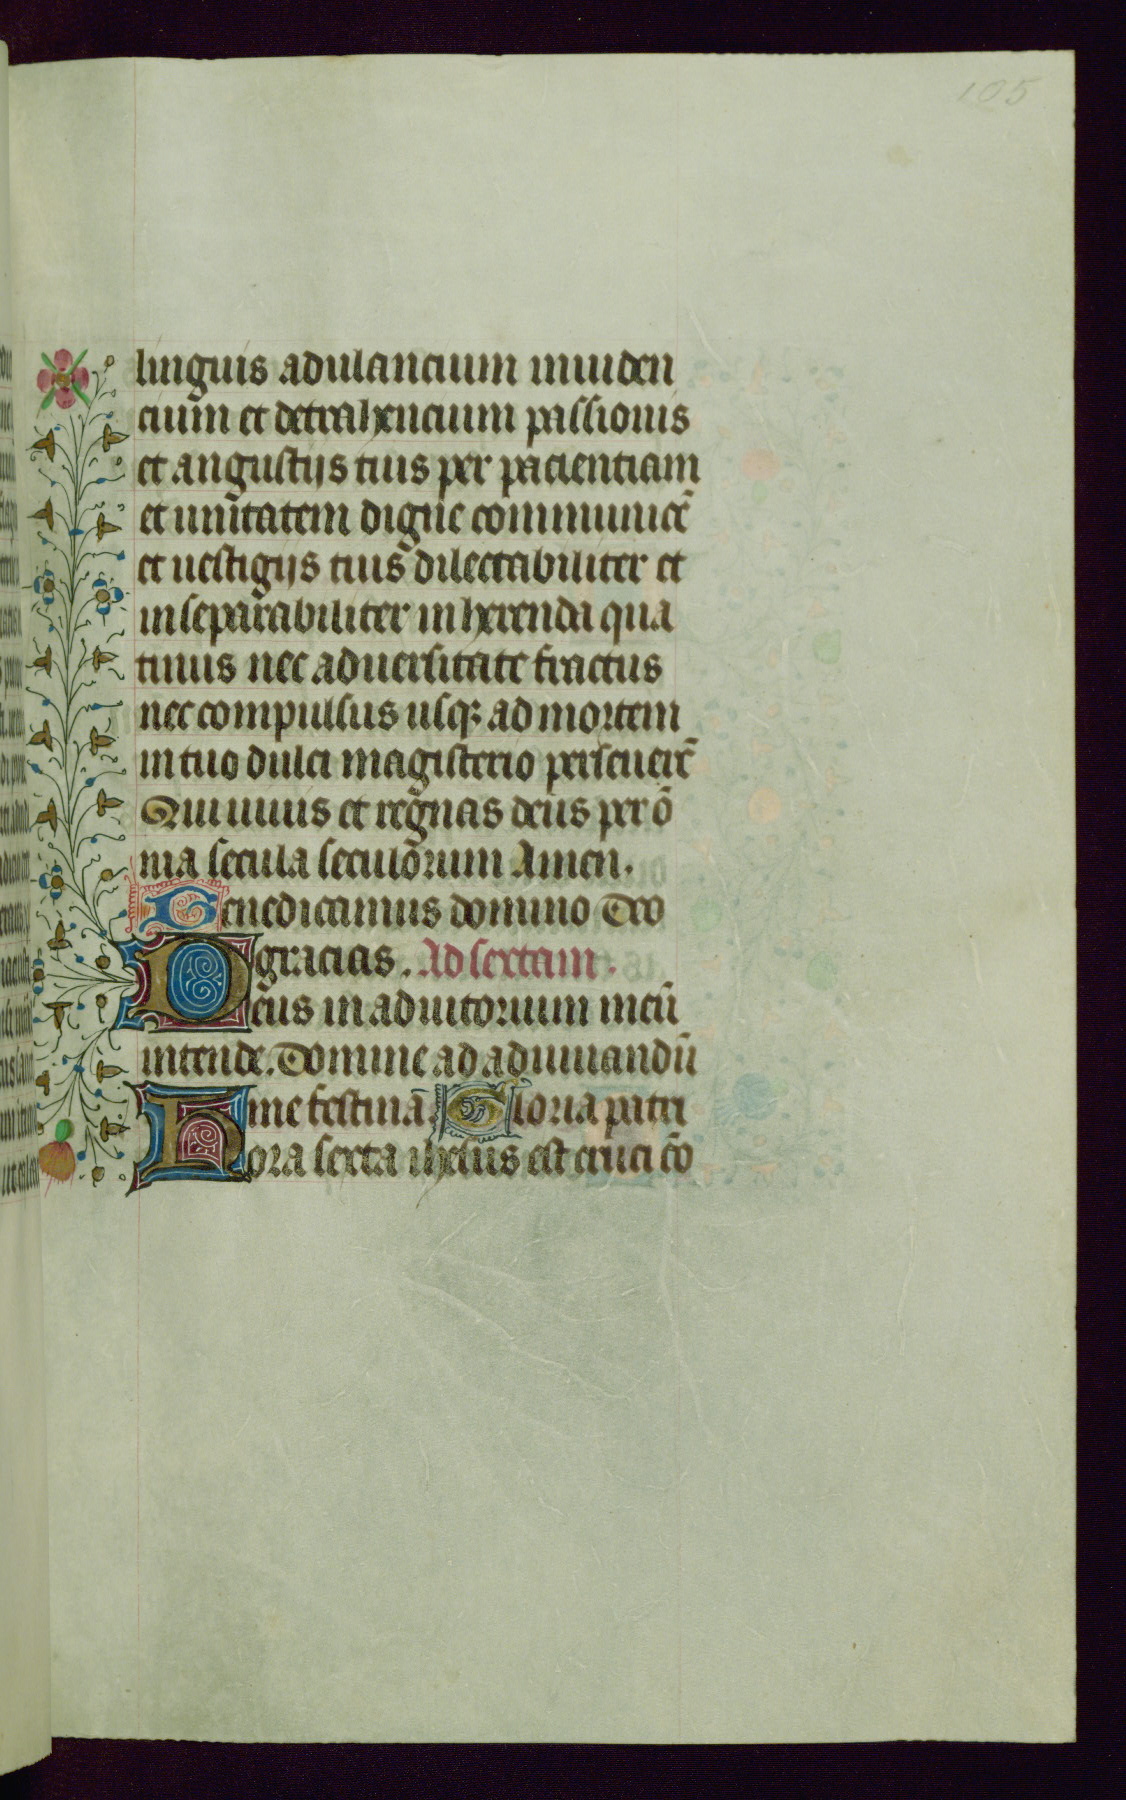 105
linguis adulancium inuiden
cium et detrahencium passionis
et angustijs tuis per pacientiam
et unitatem digne communicē
et uestigijs tuis dilectabiliter et
inseparabiliter inherenda qua
tinus nec aduersitate fractus
nec compulsus usq; ad mortem
in tuo dulci magisterio perseuerē
Qui uiuis et regnas deus per ō
nia secula seculorum Amen.
Benedicamus domino Deo
gracias. Ad sextam.
Deus in adiutorium meū
intende. Domine ad adiuuandū
me festinā. Gloria patri
Hora sexta ihesus est cruci cō